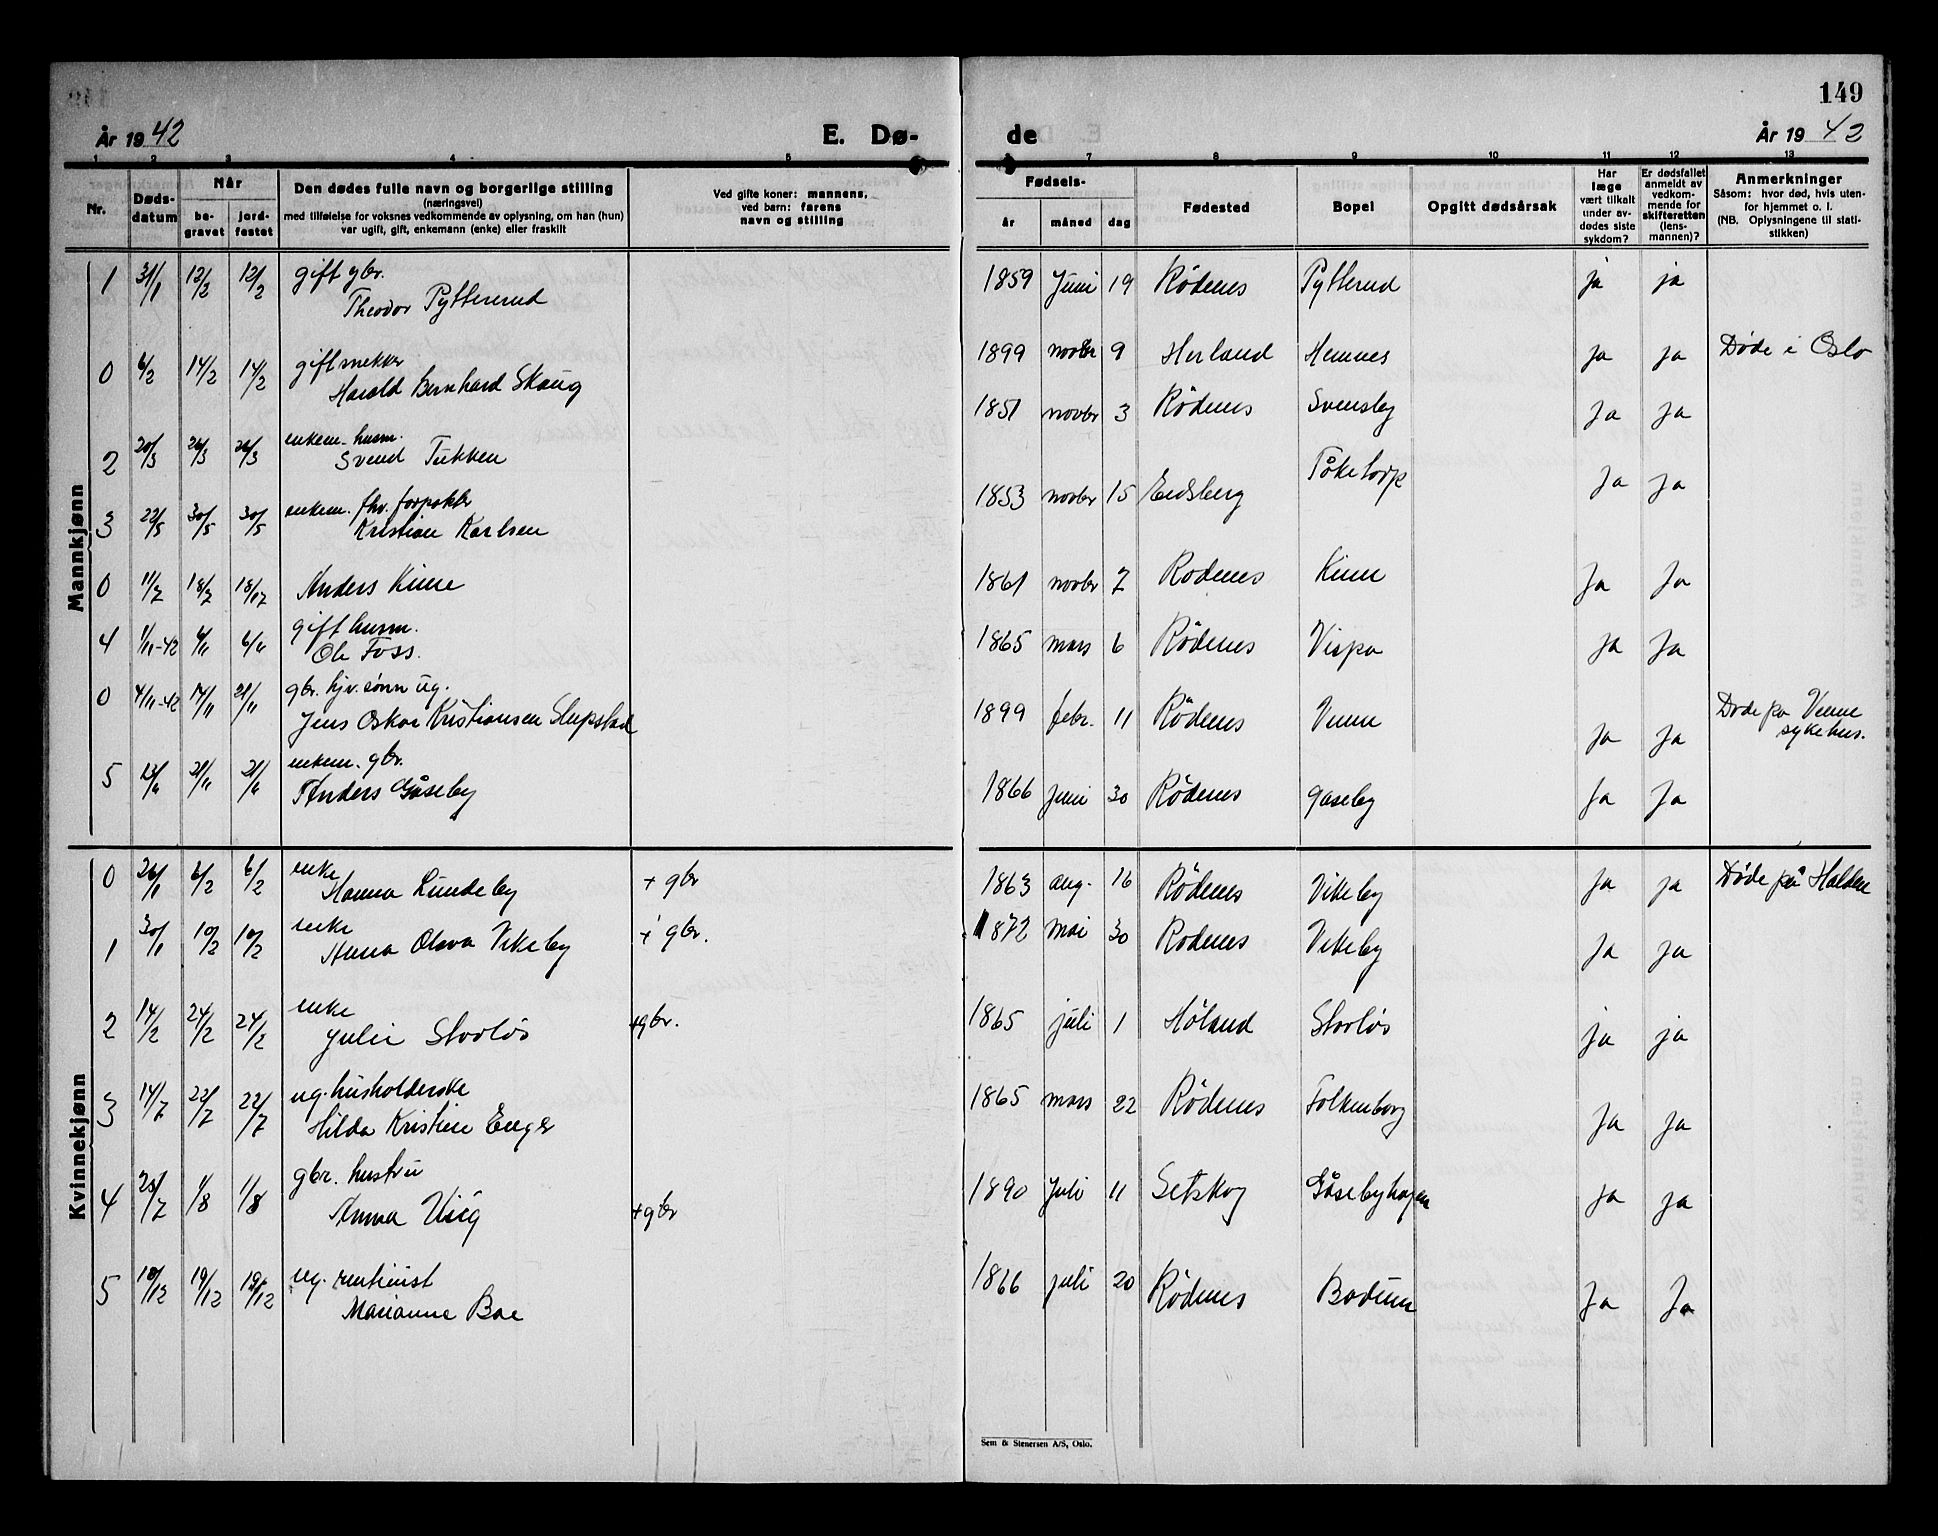 149
År 1942
E. Dø-
de
År 1942
1 2 3 4 5 6 7 8 9 10 11 12 13
Nr.
Døds-
datum
Når
be-
gravet
jord-
festet
Den dødes fulle navn og borgerlige stilling
(næringsvei)
med tilføielse for voksnes vedkommende av oplysning, om han (hun)
var ugift, gift, enkemann (enke) eller fraskilt
Ved gifte koner: mannens,
ved barn: farens
navn og stilling
Fødsels-
år måned dag
Fødested
Bopel
Opgitt dødsårsak
Har
læge
vært tilkalt
under av-
dødes siste
sykdom?
Er dødsfallet
anmeldt av
vedkom-
mende for
skifteretten
(lens-
mannen)?
Anmerkninger
Såsom: hvor død, hvis uten-
for hjemmet o. l.
(NB. Oplysningene til stati-
stikken)
Mannkjønn
1 31/1 12/2 12/2 gift gbr.
Theodor Pytterud 1859 Juni 19 Rödenes Pytterud ja ja
0 6/2 14/2 14/2 gift
Harald Bernhard Skaug 1899 novbr 9 Herland Hemnes ja ja Døde i Oslo
2 20/3 26/3 26/3 enkem. husm.
Svend Tukken 1851 novbr 3 Rödenes Svensby Ja Ja
3 22/5 30/5 30/5 enkem. fhv. forpakter
Kristian Karlsen 1853 novbr 15 Eidsberg Tåketorp Ja Ja
0 11/7 18/7 18/7 Anders Kine 1861 novbr 7 Rodenes Ja Ja
4 1/11-42 6/11 6/11 gift husm.
Ole Foss. 1865 mars 6 Rödenes Vispa Ja Ja
0 4/11-42 14/11 21/11 gbr. hjv. sønn ug.
Jens Oskar Kristiansen Slupstad 1899 febr. 11 Rödenes Ja Ja Døde på
sykehus.
5 13/11 21/11 21/11 enkem. gbr.
Anders Gåseby 1866 juni 30 Rödenes gaseby Ja Ja
Kvinnekjønn
0 26/1 6/2 6/2 enke
Hanna Lundeby + gbr 1863 aug. 16 Rödenes Vikeby Ja ja Døde på Halden
1 30/1 10/2 10/2 enke
Anna Olava Vikeby + gbr. 1872 mai 30 Rodenes Vikeby Ja Ja
2 14/2 24/2 24/2 enke
Julie Storløs +gbr. 1865 juli 1 Høland Storløs ja ja
3 14/7 22/7 22/7 ug. husholderske
Hilda Kristine Enger 1865 mars 22 Rödenes Folkenborg Ja Ja
4 25/7 1/8 1/8 gbr. hustru
Anna Visig +gbr 1890 juli 11 Setskog Gåsebyhagen Ja Ja
5 10/12 19/12 19/12 ug. rentenist
Marianne Boe 1866 juli 20 Rödenes Ja Ja
Sem & Stenersen A/S, Oslo.